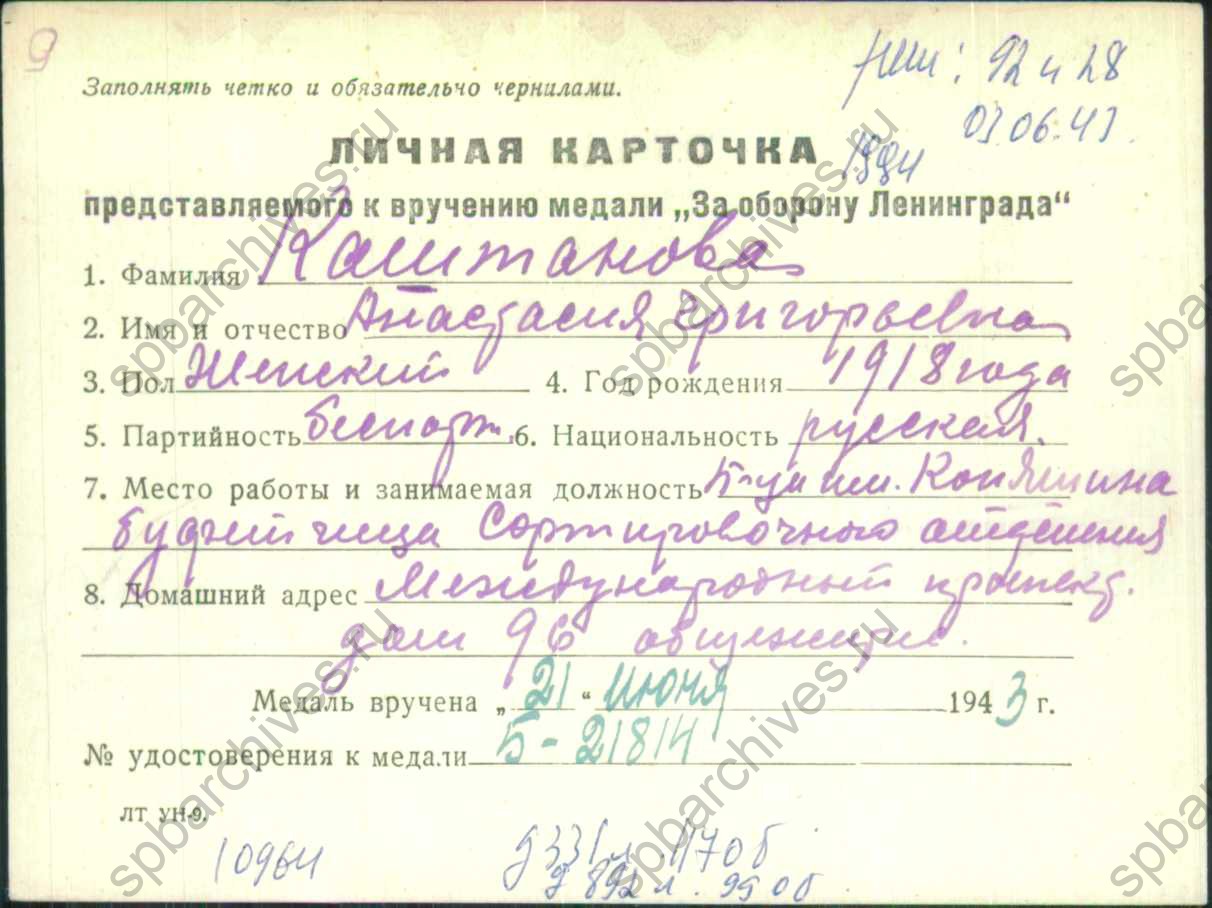 9
реш: 92 и 28
03.06.43.
Заполнять четко и обязательно чернилами.
ЛИЧНАЯ КАРТОЧКА
1994
представляемого к вручению медали „За оборону Ленинграда“
1. Фамилия Каштанова
2. Имя и отчество Анастасия Григорьевна
3. Пол Женский 4. Год рождения 1918 года
5. Партийность беспарт. 6. Национальность русская.
7. Место работы и занимаемая должность б-ца им. Коняшина
буфетчица Сортировочного отделения
8. Домашний адрес Международный проспект.
дом 96 общежитие.
Медаль вручена „21“ июня 1943 г.
№ удостоверения к медали Б-21814
ЛТ УН-9.
10964
д 331 л. 117 об
д 892 л. 99 об
spbarchives.ru